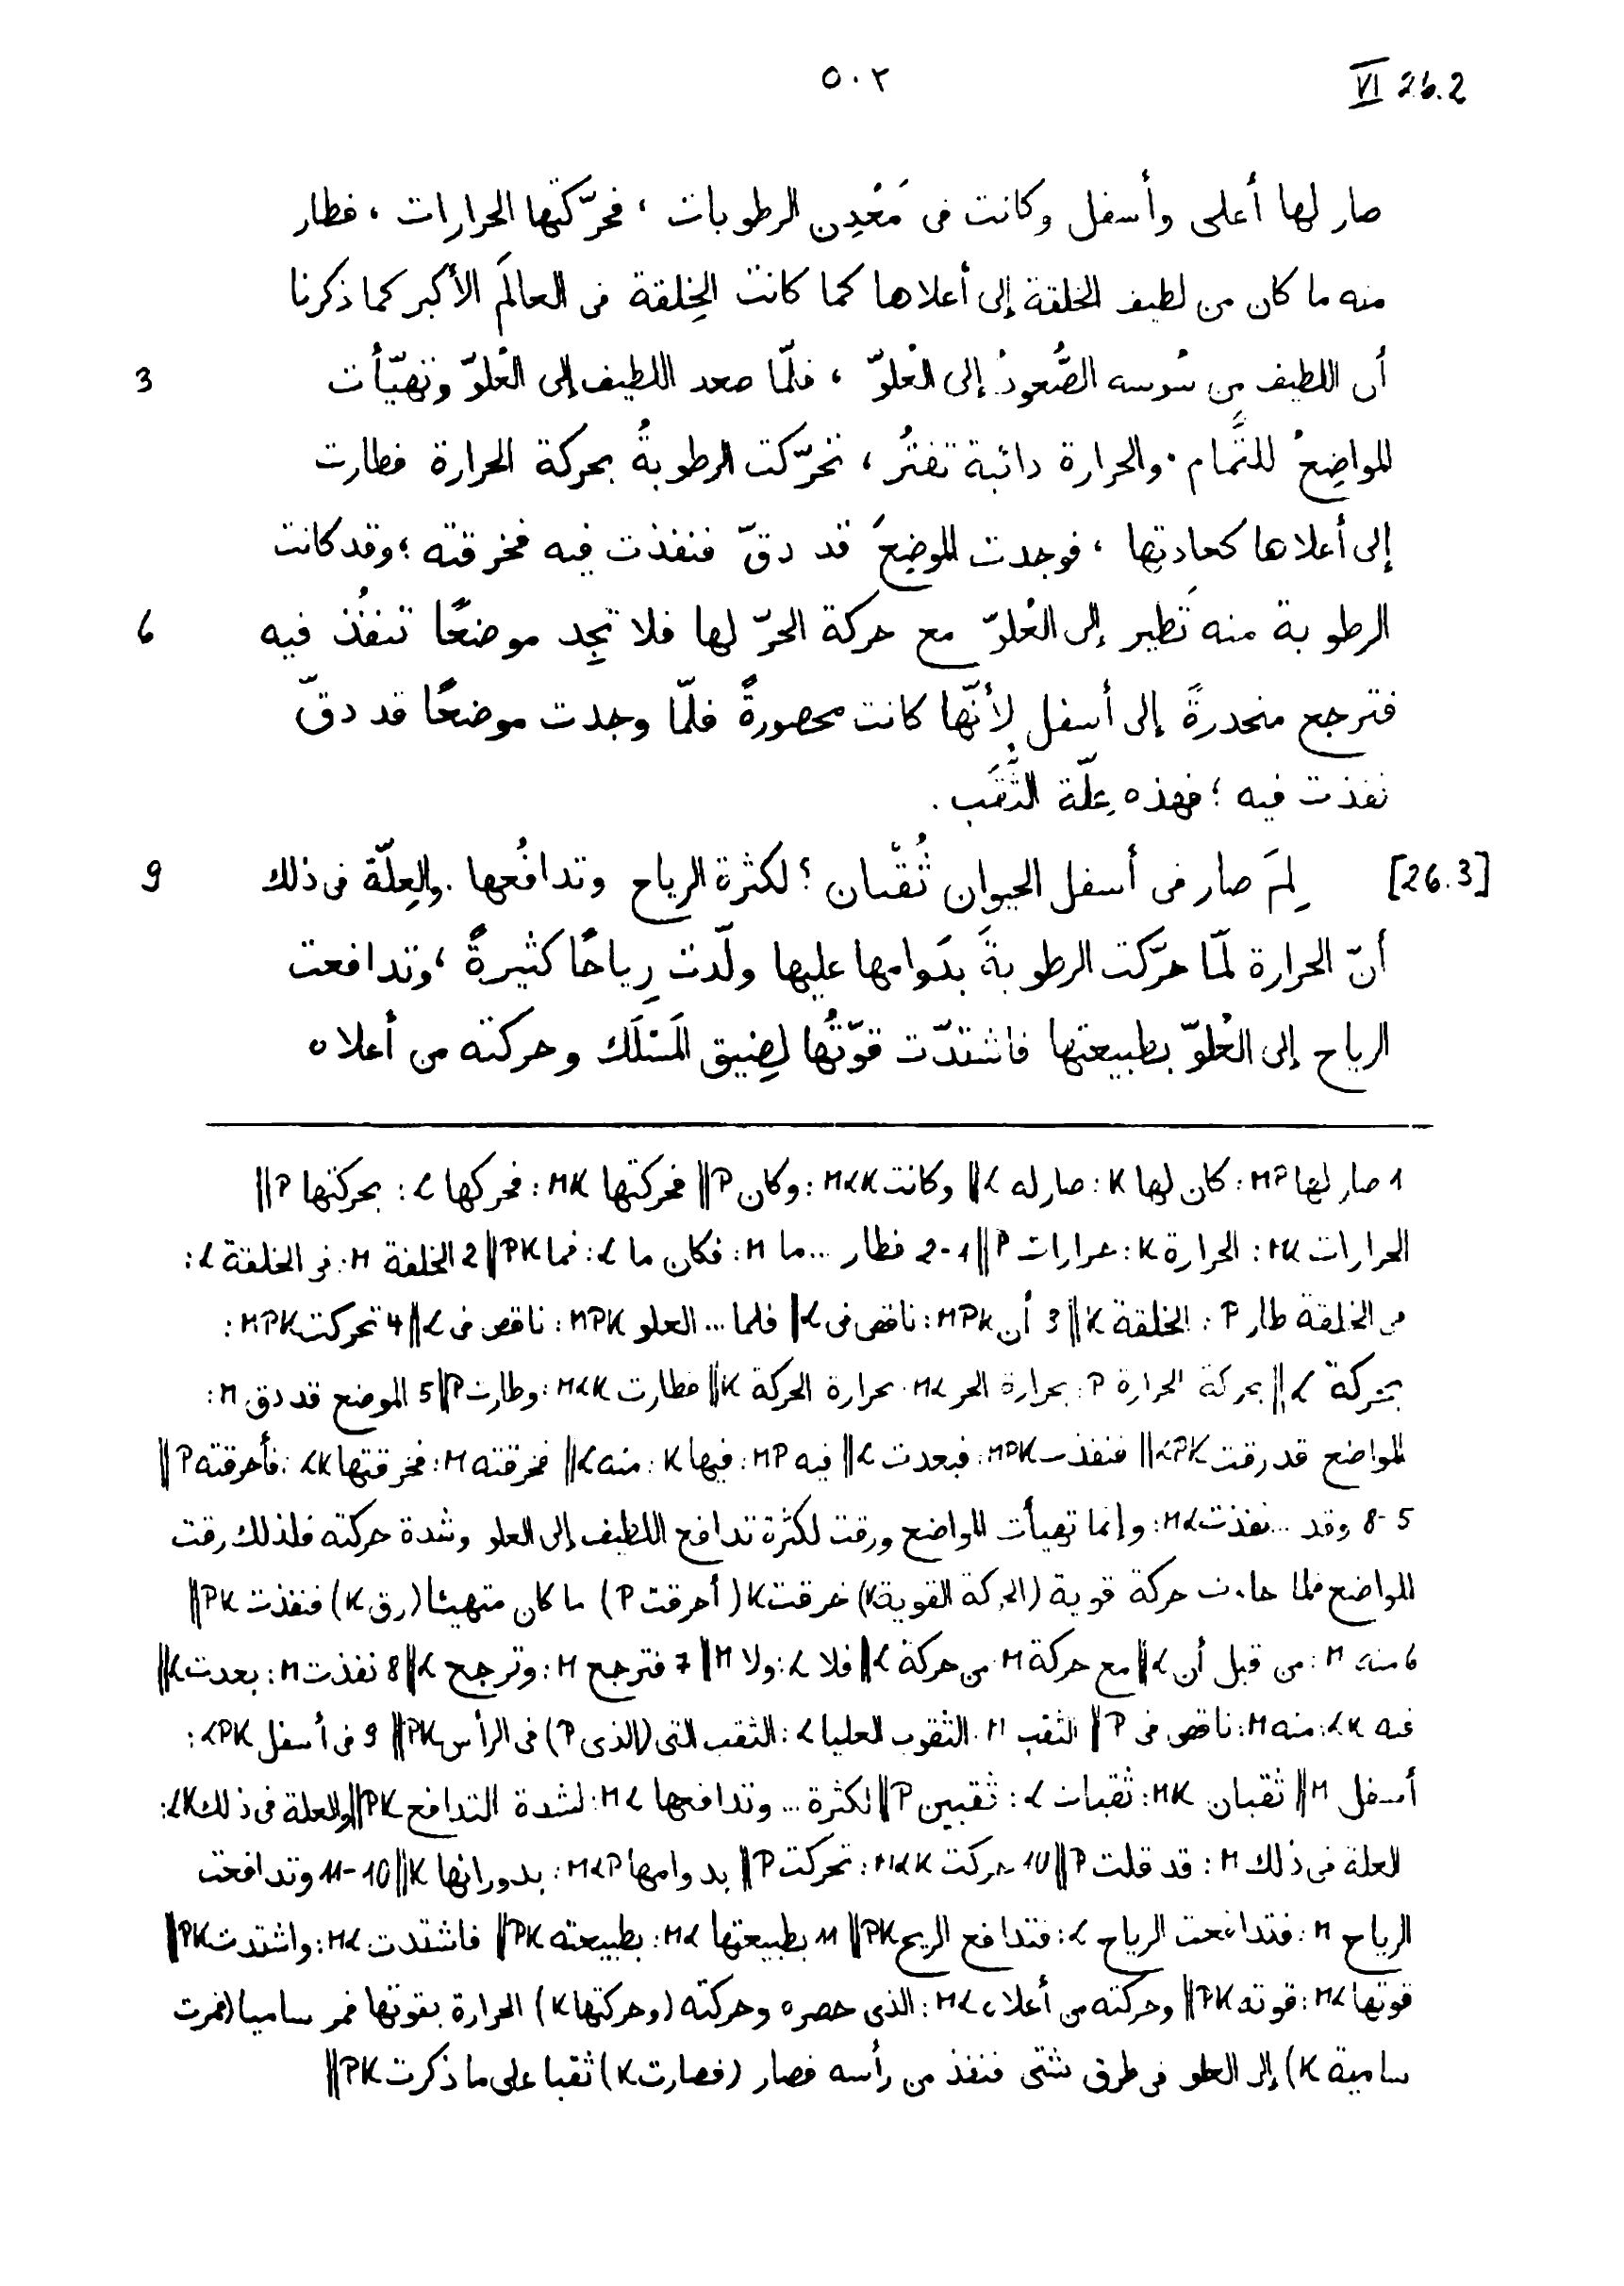 VI 26.2
٥٠٢
صار لها أعلى وأسفل وكانت فى مَعْدِن الرطوبات ، فحرّكتها الحرارات ، فطار
منه ما كان من لطيف الخلقة إلى أعلاها كما كانت الخِلقة فى العالَم الأكبر كما ذكرنا
أن اللطيف من سُوسه الصُّعودُ إلى العُلوّ ، فلمّا صعد اللطيف إلى العُلوّ وتهيّأت 3
المواضِعُ للتَّمام . والحرارة دائبة تفترُ ، تحرّكت الرطوبةُ بحركة الحرارة فطارت
إلى أعلاها كعادتها ، فوجدت الموضِعَ قد دقّ فنفذت فيه فخرقته ؛ وقد كانت
الرطوبة منه تَطير إلى العُلوّ مع حركة الحرّ لها فلا تجِد موضعًا تنفُذ فيه 6
فترجع منحدرةً إلى أسفل لأنّها كانت محصورةً فلمّا وجدت موضعًا قد دقّ
نفذت فيه ؛ فهذه عِلّة الثُّقَب .
[26.3] لِمَ صار فى أسفل الحيوان ثُقْبان ؟ لكثرة الرياح وتدافُعها . والعِلّة فى ذلك 9
أنّ الحرارة لمّا حرّكت الرطوبةَ بدَوامها عليها ولّدت رِياحًا كثيرةً ، وتدافعت
الرياح إلى العُلوّ بطبيعتها فاشتدّت قوّتُها لِضِيق المَسْلَك وحركته من أعلاه
1 صار لها MP : كان لها K : صار له L ‖ وكانت MLK : وكان P ‖ فحركتها MK : فحركها L : بحركتها P ‖
الحرارات ML : الحرارة K : حرارات P ‖ 1-2 فطار ... ما M : فكان ما L : فما PK ‖ 2 الخلقة M : فى الخلقة L :
من الخلقة طار P : الخلقة K ‖ 3 أن MPK : ناقص فى L ‖ فلما ... العلو MPK : ناقص فى L ‖ 4 تحركت MPK :
بتحركة L ‖ بحركة الحرارة P : بحرارة الحر ML : بحرارة الحركة K ‖ فطارت MLK : وطارت P ‖ 5 الموضع قد دق M :
المواضع قد رقت LPK ‖ فنفذت MPK : فبعدت L ‖ فيه MP : فيها K : منه L ‖ فخرقته M : فخرقتها LK : فأحرقته P ‖
5-8 وقد ... نفذت ML : وإنما تهيأت المواضع ورقت لكثرة تدافع اللطيف إلى العلو وشدة حركته فلذلك رقت
المواضع فلما جاءت حركة قوية (الحركة القوية K) خرقت K (أحرقت P) ما كان متهيئا (رق K) فنفذت PK ‖
6 منه M : من قبل أن L ‖ مع حركة M : من حركة L ‖ فلا L : ولا M ‖ 7 فترجع M : وترجع L ‖ 8 نفذت M : بعدت L ‖
فيه LK : منه M : ناقص فى P ‖ الثقب M : الثقوب العليا L : الثقب التى (الذى P) فى الرأس PK ‖ 9 فى أسفل LPK :
أسفل M ‖ ثقبان MK : ثقبات L : ثقبين P ‖ لكثرة ... وتدافعها ML : لشدة التدافع PK ‖ والعلة فى ذلك LK :
العلة فى ذلك M : قد قلت P ‖ 10 حركت MLK : تحركت P ‖ بدوامها MLP : بدورانها K ‖ 10-11 وتدافعت
الرياح M : فتدافعت الرياح L : فتدافع الريح PK ‖ 11 بطبيعتها ML : بطبيعته PK ‖ فاشتدت ML : واشتدت PK ‖
قوتها ML : قوته PK ‖ وحركته من أعلاه ML : الذى حصره وحركته (وحركتها K) الحرارة بقوتها فمر ساميا (فمرت
سامية K) إلى العلو فى طرق شتى فنفذ من رأسه فصار (فصارت K) ثقبا على ما ذكرت PK ‖